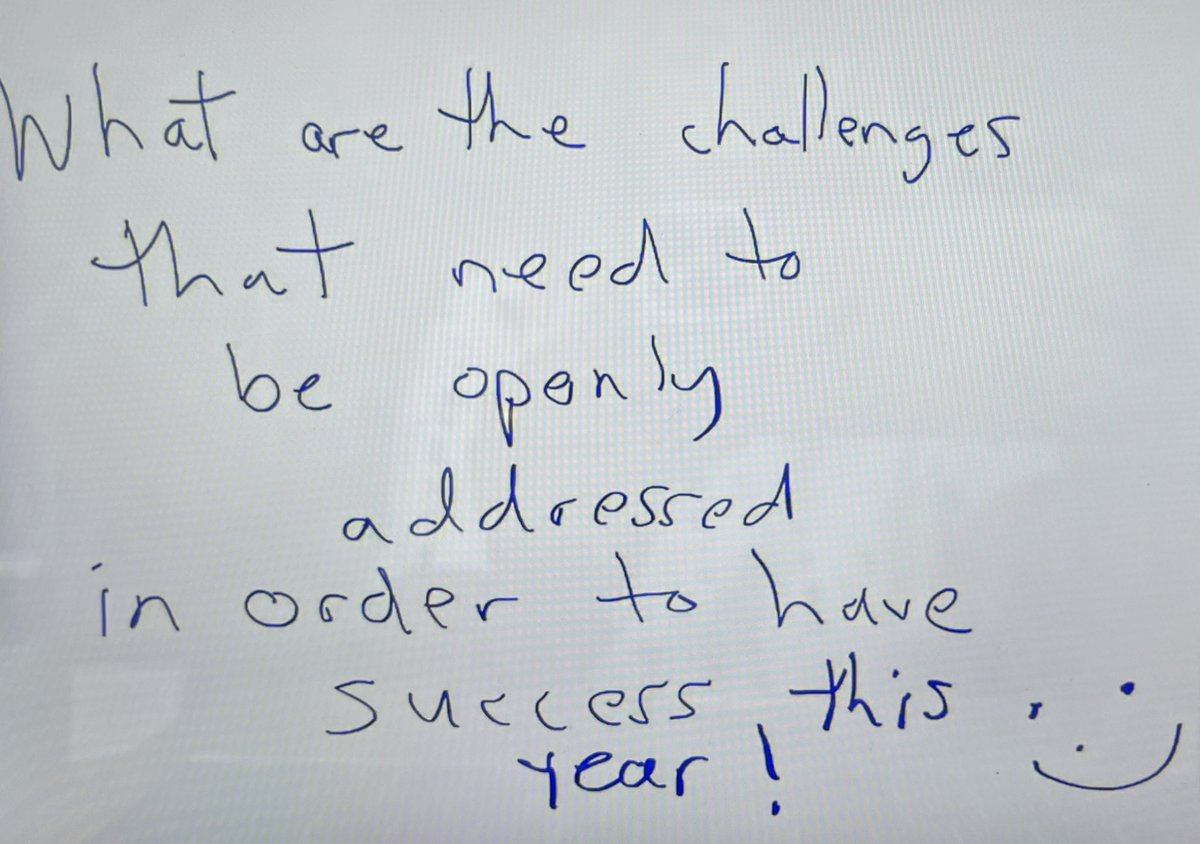 What are the challenges
that need to
be openly
addressed
in order to have
success this
year!